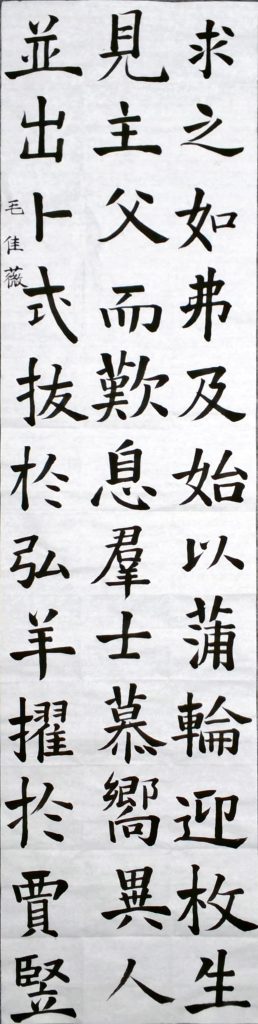 求之如弗及始以蒲輪迎枚生
見主父而歎息羣士慕嚮異人
並出卜式拔於弘羊擢於賈豎
毛佳薇